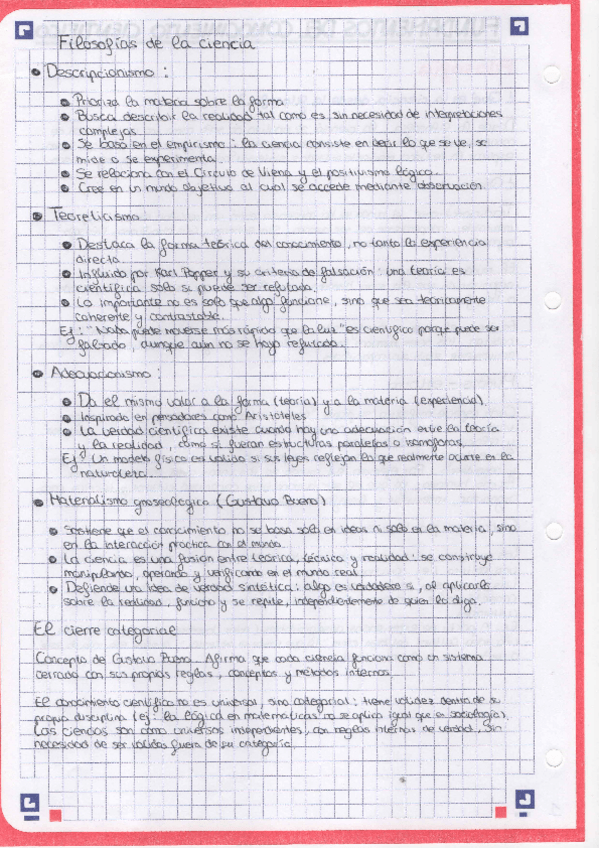 Filosofías de la ciencia
• Descripcionismo :
• Prioriza la materia sobre la forma
• Busca describir la realidad tal como es, sin necesidad de interpretaciones
complejas
• Se basa en el empirismo : la ciencia consiste en decir lo que se ve, se
mide o se experimenta.
• Se relaciona con el Círculo de Viena y el positivismo lógico.
• Cree en un mundo objetivo al cual se accede mediante observación.
• Teoreticismo
• Destaca la forma teórica del conocimiento, no tanto la experiencia
directa.
• Influido por Karl Popper y su criterio de falsación : una teoría es
científica solo si puede ser refutada.
• Lo importante no es solo que algo funcione, sino que sea teóricamente
coherente y contrastable.
Ej : "Nada puede moverse más rápido que la luz" es científico porque puede ser
falsado, aunque aún no se haya refutado.
• Adecuacionismo :
• Da el mismo valor a la forma (teoría) y a la materia (experiencia)
• Inspirado en pensadores como Aristóteles
• La verdad científica existe cuando hay una adecuación entre la teoría
y la realidad, como si fueran estructuras paralelas o isomorfas.
Ej : Un modelo físico es válido si sus leyes reflejan lo que realmente ocurre en la
naturaleza.
• Materialismo gnoseológico (Gustavo Bueno)
• Sostiene que el conocimiento no se basa solo en ideas ni solo en la materia, sino
en la interacción práctica con el mundo
• La ciencia es una fusión entre teórica, técnica y realidad : se construye
manipulando, operando y verificando en el mundo real.
• Defiende una idea de verdad sintética : algo es verdadero si, al aplicarlo
sobre la realidad, funciona y se repite, independientemente de quien lo diga.
El cierre categorial
Concepto de Gustavo Bueno. Afirma que cada ciencia funciona como un sistema
cerrado con sus propias reglas, conceptos y métodos internos.
El conocimiento científico no es universal, sino categorial : tiene validez dentro de su
propia disciplina (ej : la lógica en matemáticas no se aplica igual que en sociología).
Las ciencias son como universos independientes, con reglas internas de verdad, sin
necesidad de ser válidas fuera de su categoría.